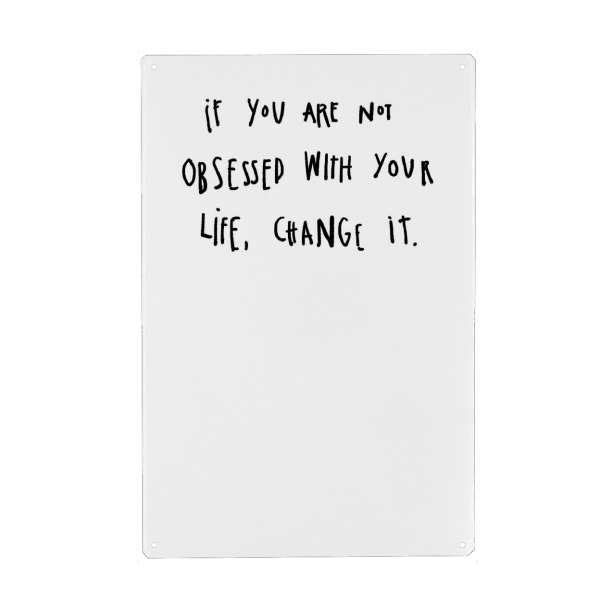 iF YOU ARE NOT
OBSESSED WITH YOUR
LiFE, CHANGE iT.